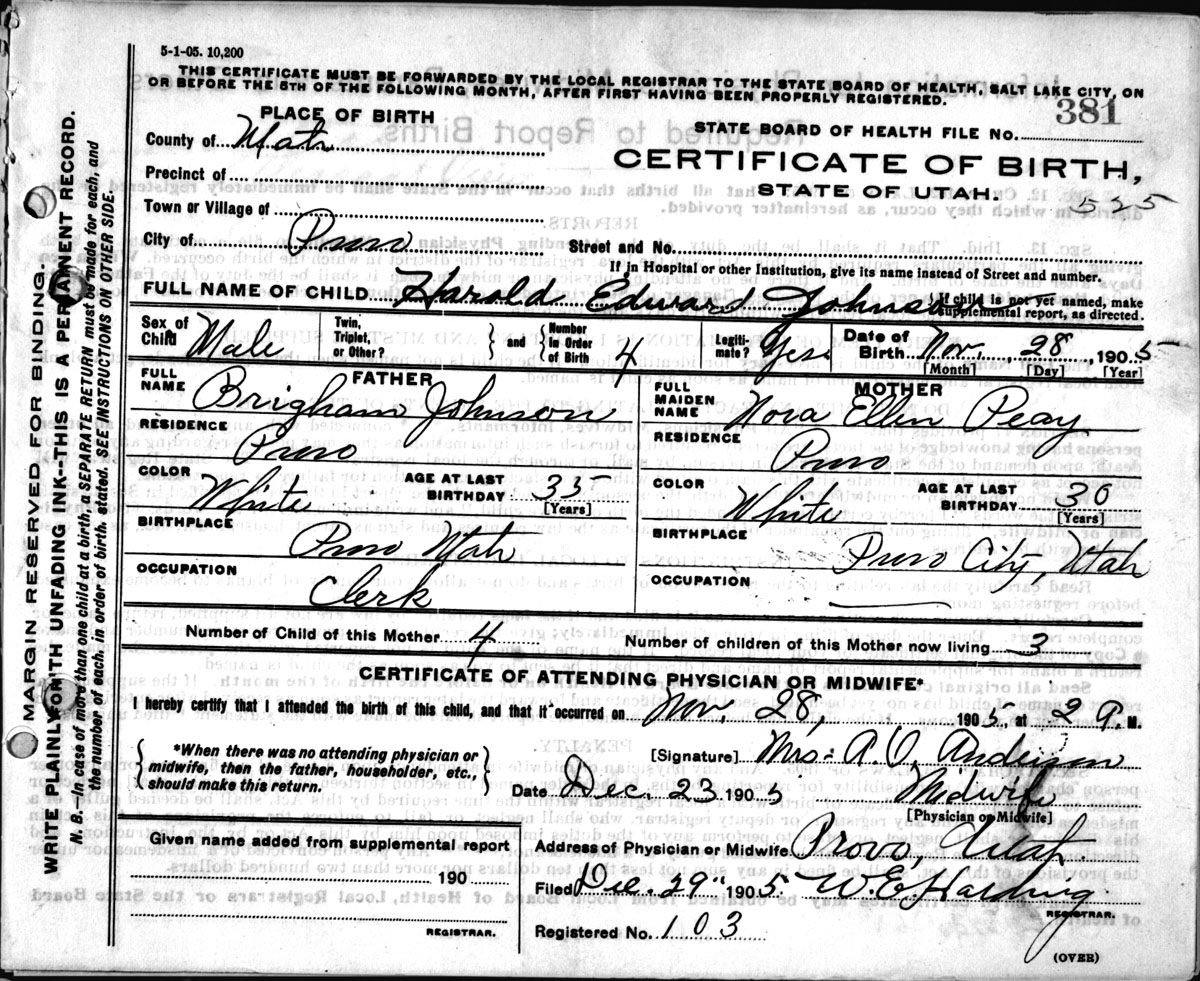 5-1-05. 10,200
THIS CERTIFICATE MUST BE FORWARDED BY THE LOCAL REGISTRAR TO THE STATE BOARD OF HEALTH, SALT LAKE CITY, ON
OR BEFORE THE 5TH OF THE FOLLOWING MONTH, AFTER FIRST HAVING BEEN PROPERLY REGISTERED.
PLACE OF BIRTH
STATE BOARD OF HEALTH FILE NO. 381
County of Utah
CERTIFICATE OF BIRTH,
Precinct of
STATE OF UTAH.
525
Town or Village of
City of Provo Street and No.
If in Hospital or other Institution, give its name instead of Street and number.
FULL NAME OF CHILD Harold Edward Johnson } If child is not yet named, make supplemental report, as directed.
Sex of Child Male Twin, Triplet, or Other? } and { Number in Order of Birth 4 Legitimate? Yes. Date of Birth Nov. 28, 1905
[Month] [Day] [Year]
FATHER
FULL NAME Brigham Johnson
RESIDENCE Provo
COLOR White AGE AT LAST BIRTHDAY 35 [Years]
BIRTHPLACE Provo Utah
OCCUPATION Clerk
MOTHER
FULL MAIDEN NAME Nora Ellen Peay
RESIDENCE Provo
COLOR White AGE AT LAST BIRTHDAY 30 [Years]
BIRTHPLACE Provo City, Utah
OCCUPATION
Number of Child of this Mother 4 Number of children of this Mother now living 3
CERTIFICATE OF ATTENDING PHYSICIAN OR MIDWIFE*
I hereby certify that I attended the birth of this child, and that it occurred on Nov. 28, 1905, at 2 P. M.
{ *When there was no attending physician or midwife, then the father, householder, etc., should make this return. }
[Signature] Mrs. A. O. Anderson
Date Dec 23 1905 Midwife
[Physician or Midwife]
Given name added from supplemental report
Address of Physician or Midwife Provo, Utah.
190
Filed Dec. 29" 1905 W. E. Harding
REGISTRAR.
REGISTRAR.
Registered No. 103
(OVER)
MARGIN RESERVED FOR BINDING.
WRITE PLAINLY WITH UNFADING INK--THIS IS A PERMANENT RECORD.
N. B.--In case of more than one child at a birth, a SEPARATE RETURN must be made for each, and
the number of each, in order of birth, stated. SEE INSTRUCTIONS ON OTHER SIDE.